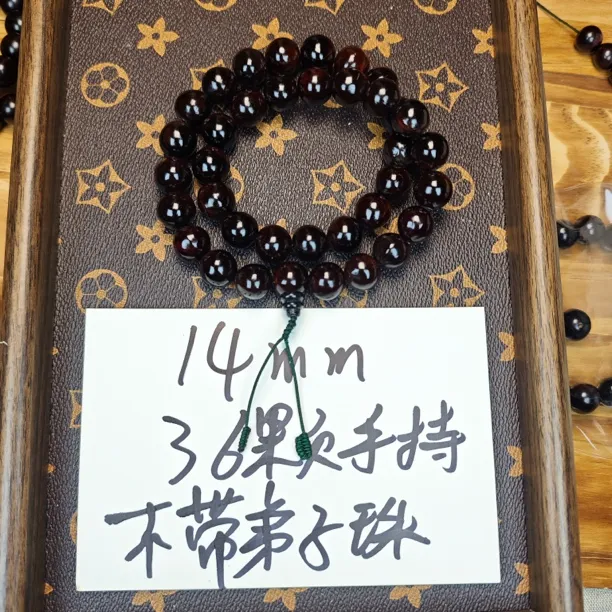 14mm
36颗负手持
不带弟子珠